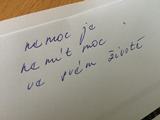 na moc je
na mít moc
ve svém životě